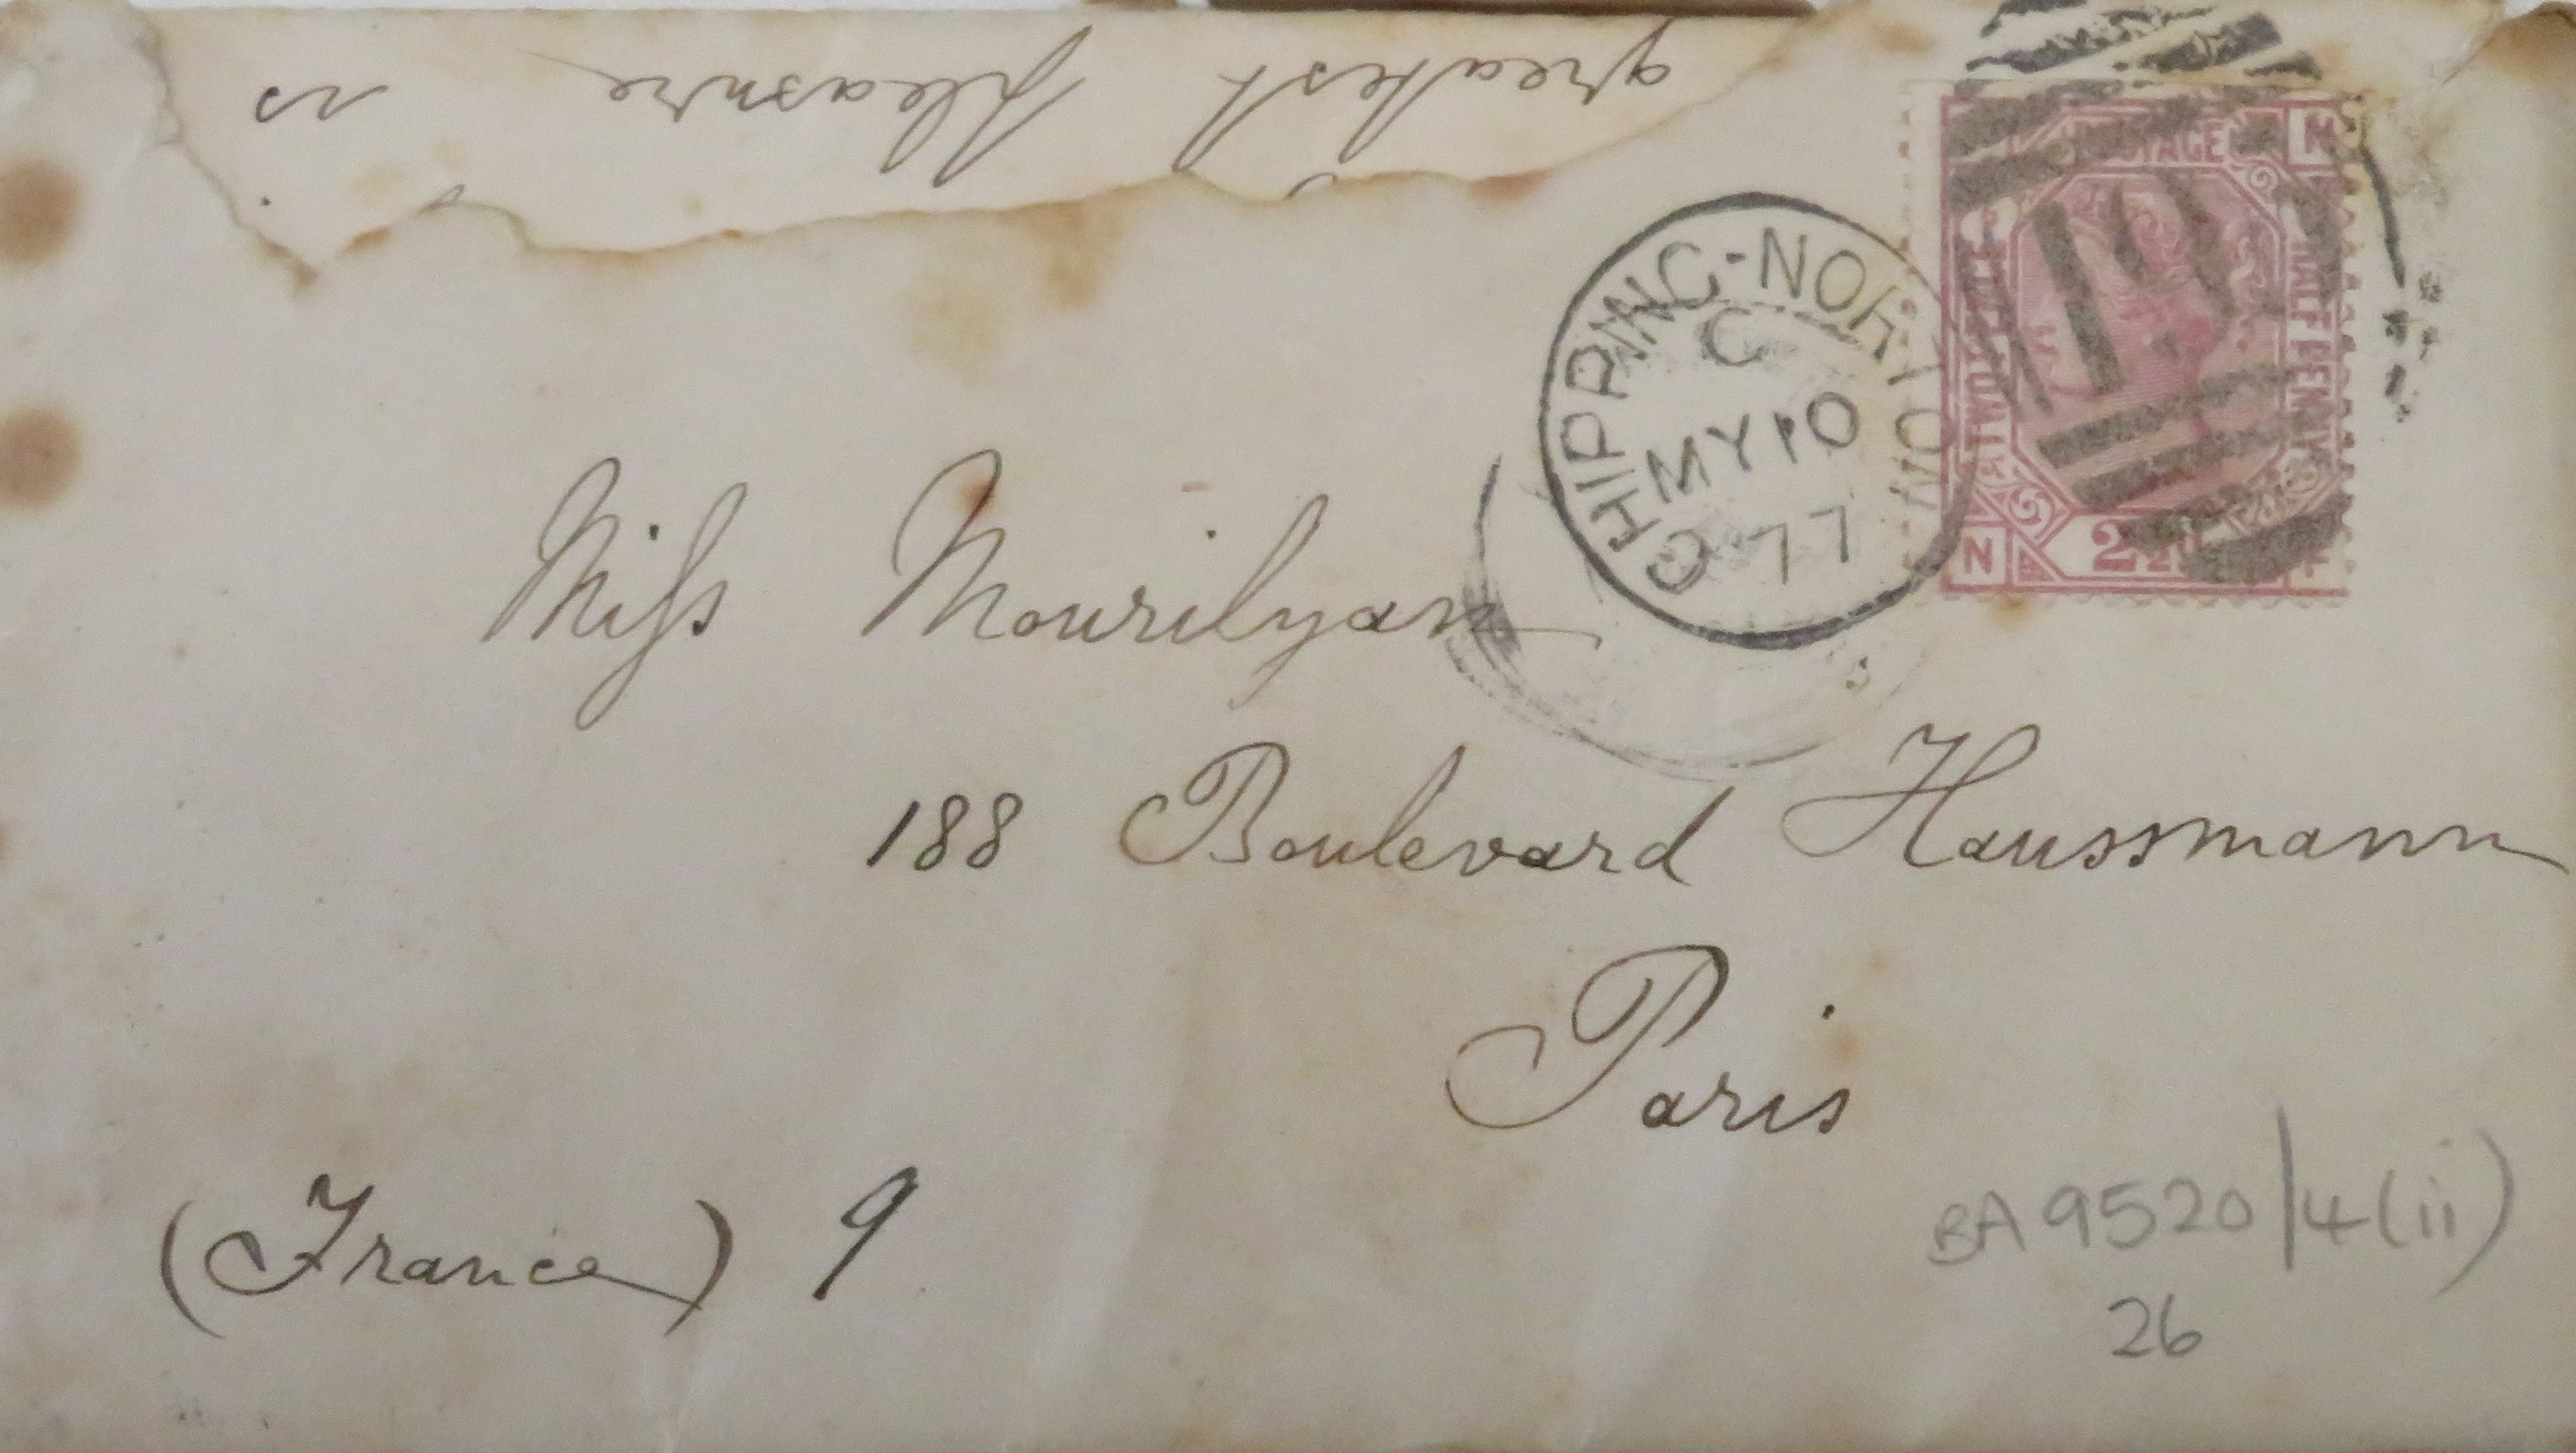 greatest pleasure is
POSTAGE
TWOPENCE
HALF PENNY
N
2½
CHIPPING-NORTON
C
MY 10
77
Miss Mourilyan
188 Boulevard Haussmann
Paris
(France) 9
BA 9520/4(ii)
26